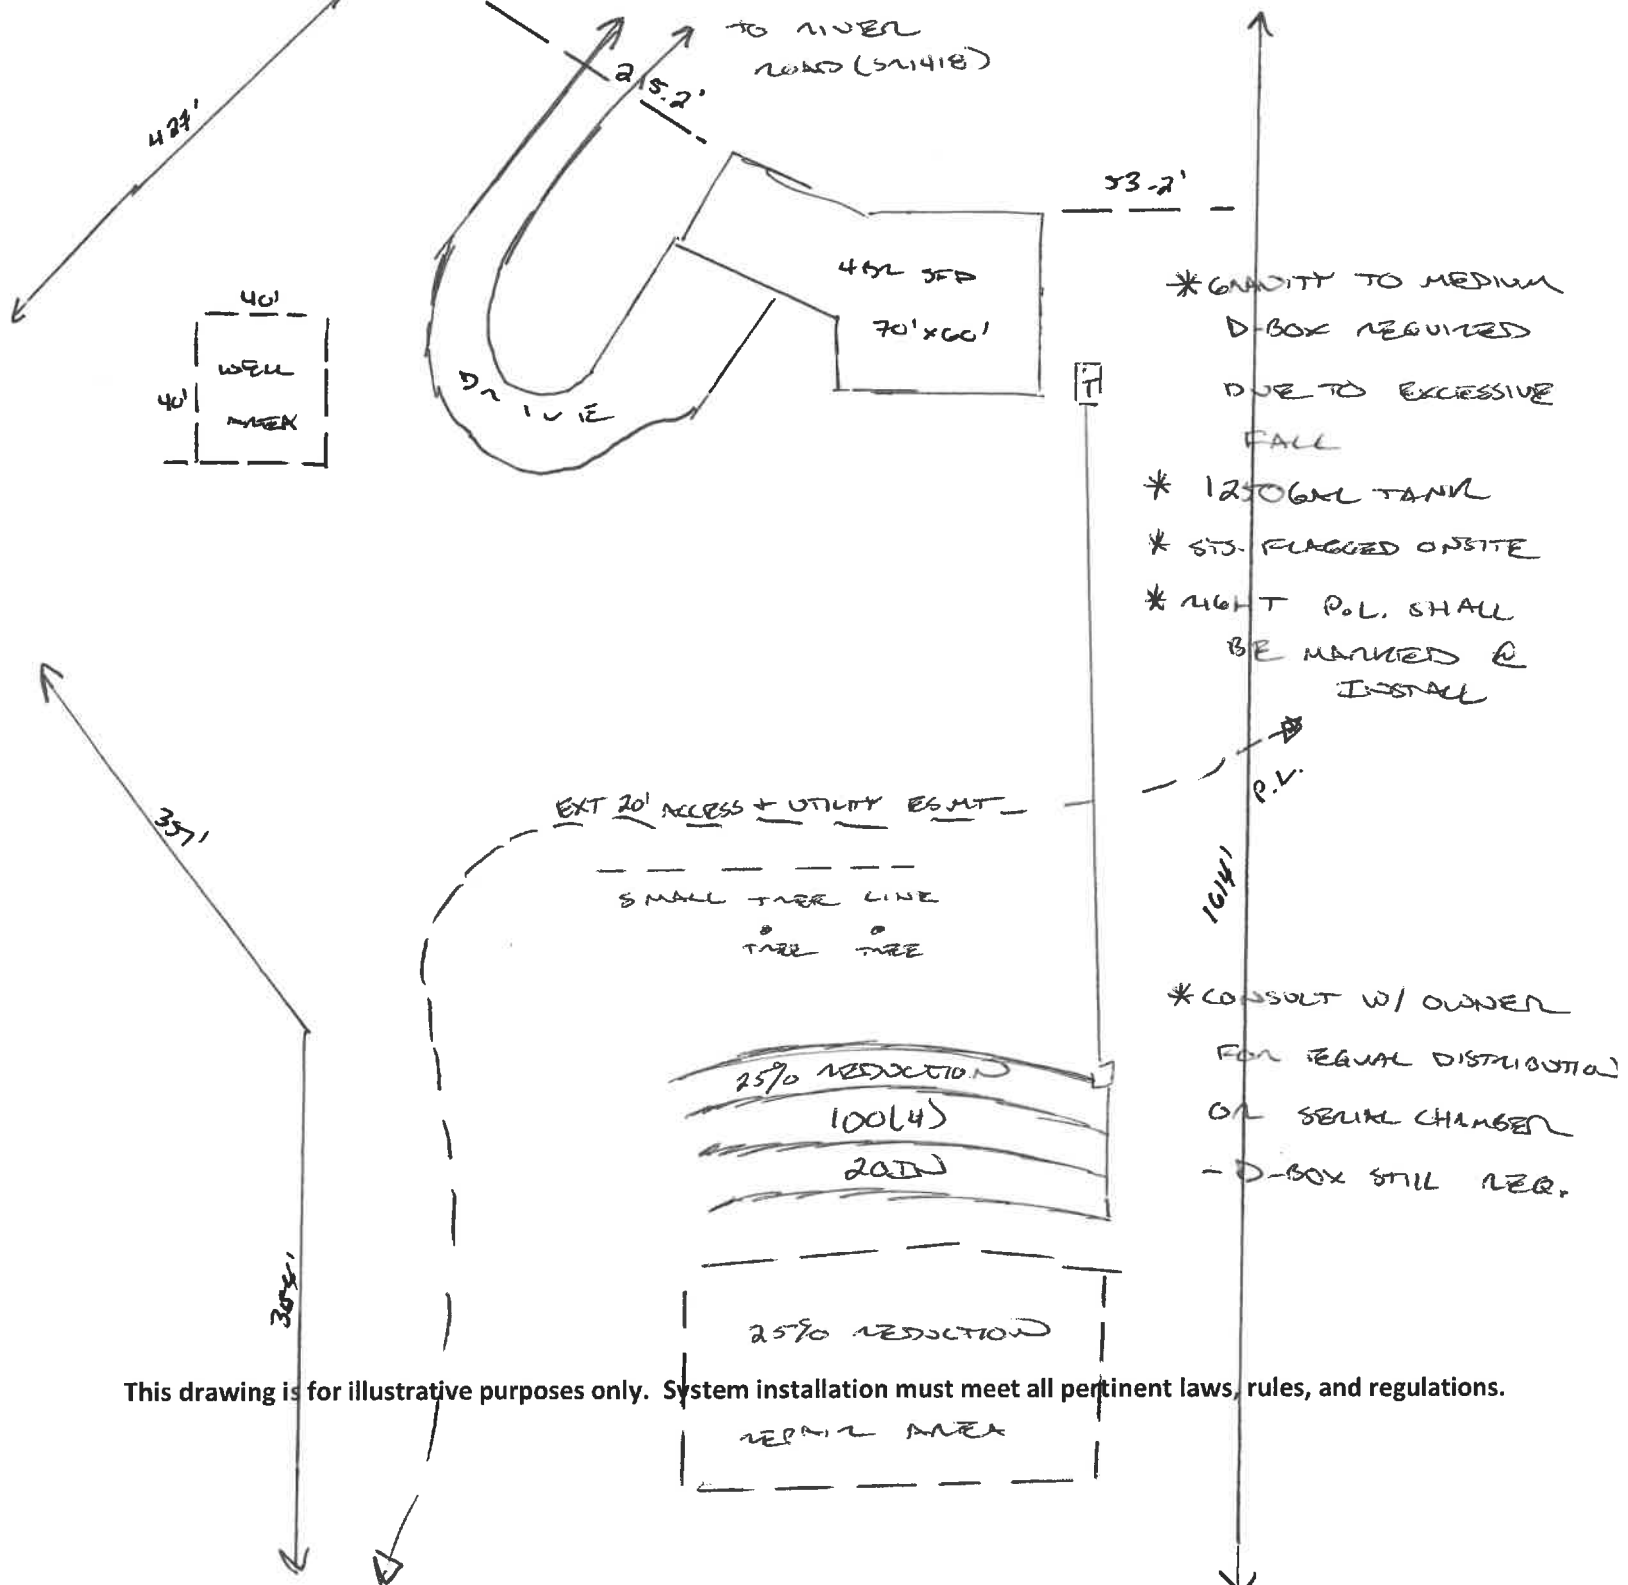 TO RIVER
ROAD (SR1418)
427'
215.2'
53.2'
4BR SFD
70'x60'
40'
WELL
40'
AREA
DRIVE
T
*GRAVITY TO MEDIUM
D-BOX REQUIRED
DUE TO EXCESSIVE
FALL
* 1250GAL TANK
* SYS. FLAGGED ONSITE
* RIGHT P.L. SHALL
BE MARKED @
INSTALL
P.L.
EXT 20' ACCESS + UTILITY ESMT
357'
SMALL TREE LINE
TREE TREE
1614'
*CONSULT W/ OWNER
FOR EQUAL DISTRIBUTION
OR SERIAL CHAMBER
- D-BOX STILL REQ.
25% REDUCTION
100(4)
20IN
25% REDUCTION
This drawing is for illustrative purposes only. System installation must meet all pertinent laws, rules, and regulations.
REPAIR AREA